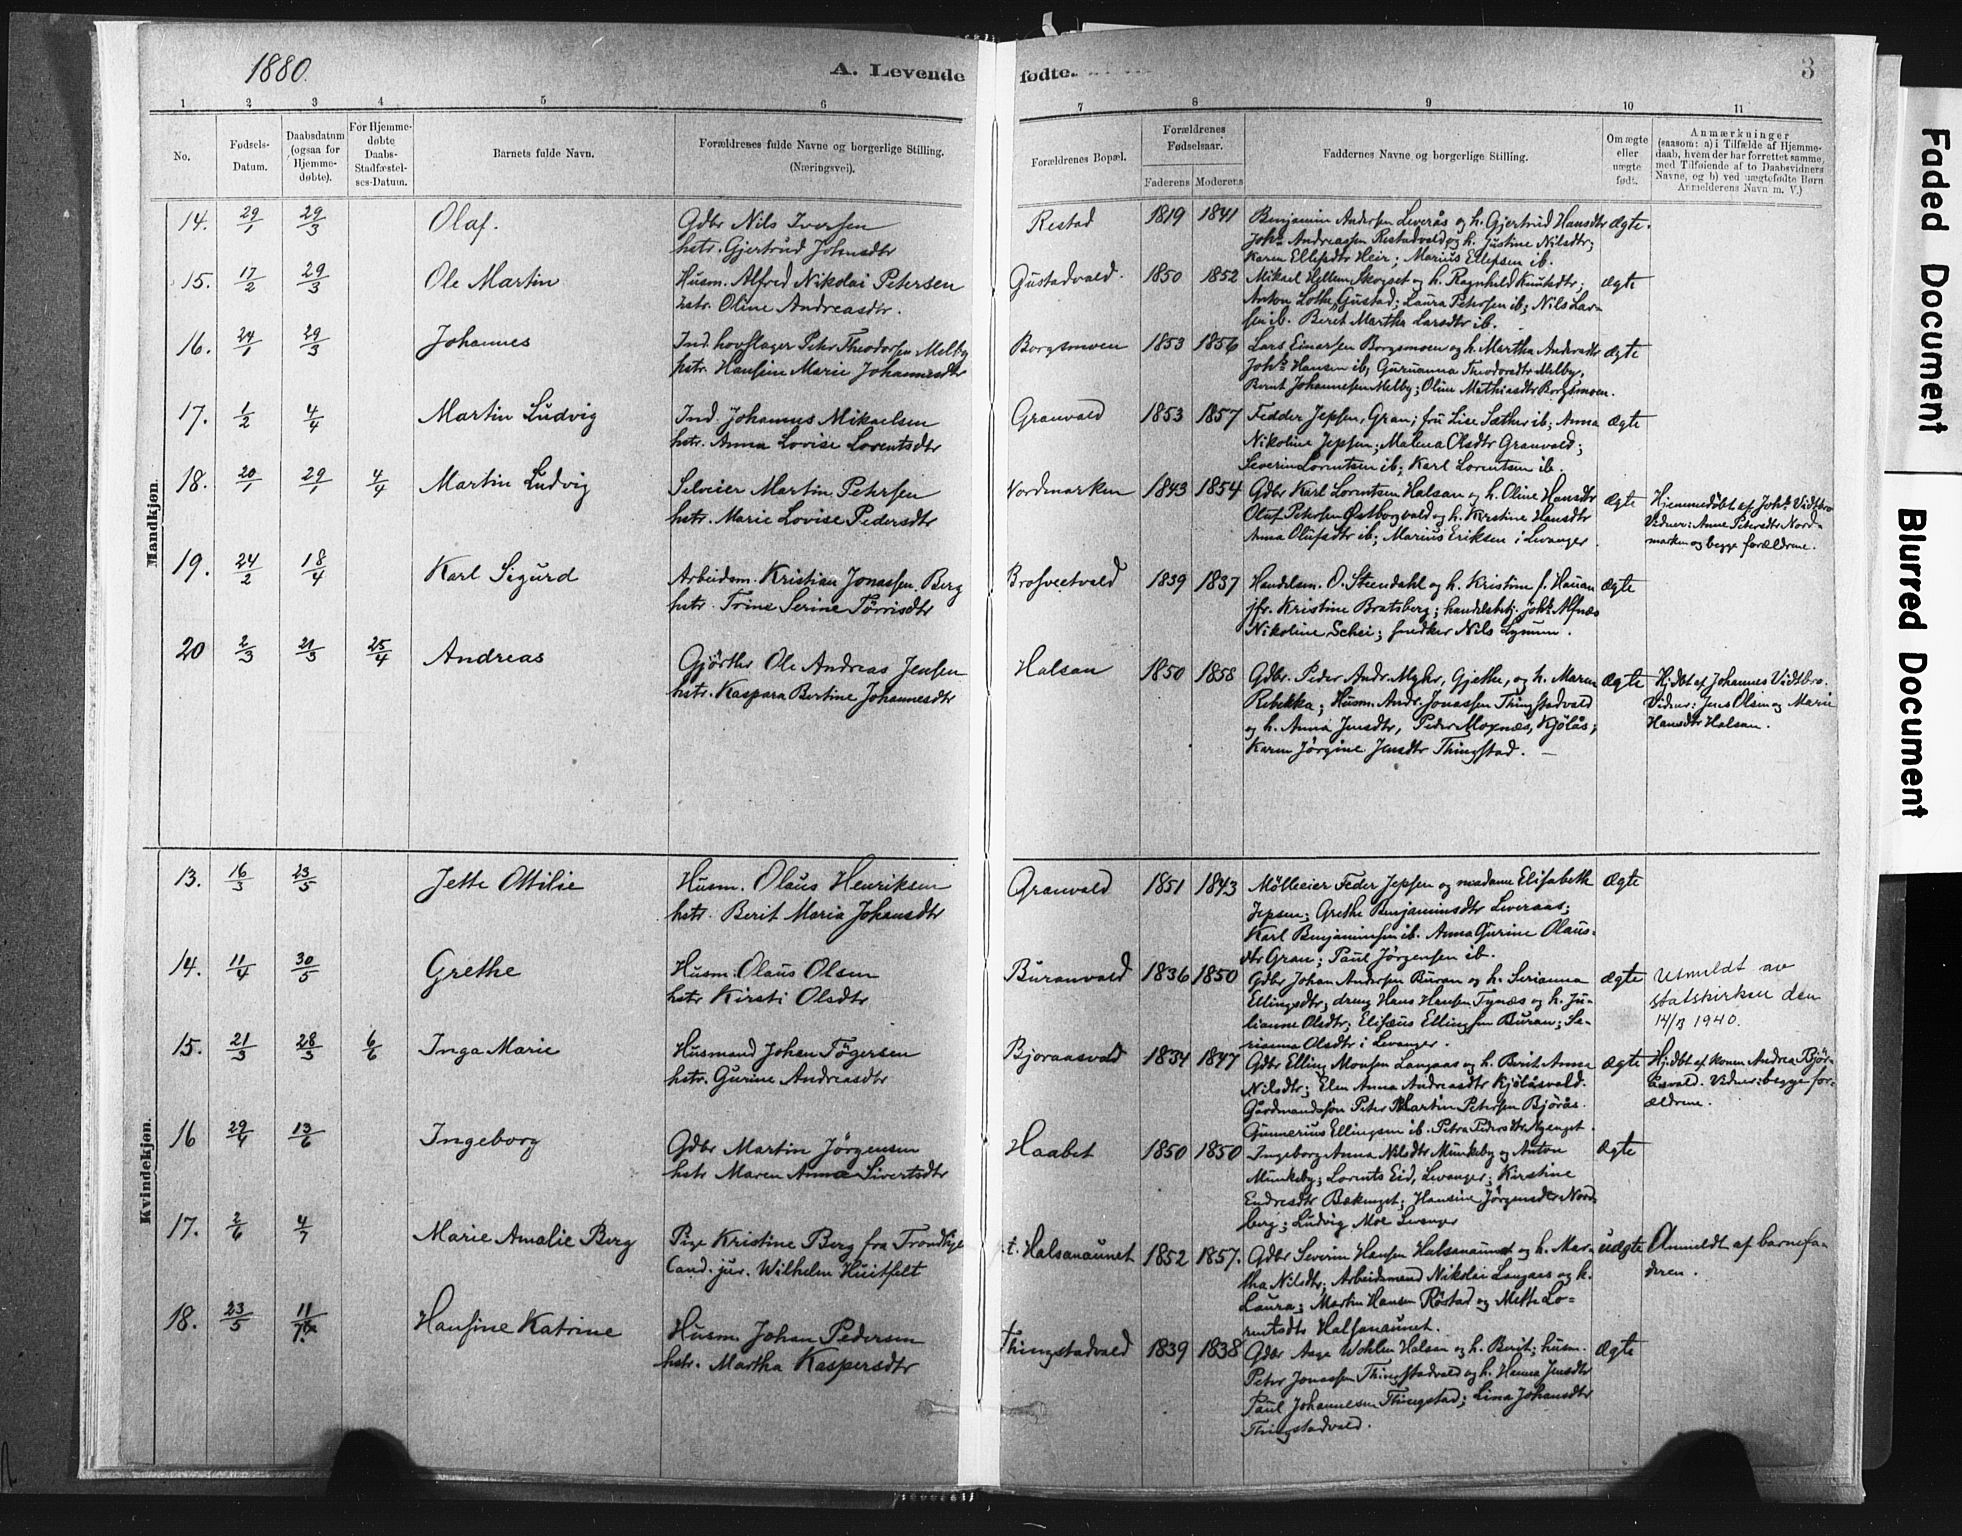 1880.
A. Levende
fødte.
3
1 2 3 4 5 6 7 8 9 10 11
No.
Fødsels-
Datum.
Daabsdatum
(ogsaa for
Hjemme-
døbte).
For Hjemme-
døbte
Daabs-
Stadfæstel-
ses-Datum.
Barnets fulde Navn.
Forældrenes fulde Navne og borgerlige Stilling.
(Næringsvei).
Forældrenes Bopæl.
Forældrenes
Fødselsaar.
Faderens Moderens
Faddernes Navne og borgerlige Stilling.
Om ægte
eller
uægte
født.
Anmærkninger
(saasom: a) i Tilfælde af Hjemme-
daab, hvem der har forrettet samme,
med Tilføiende af to Daabsvidners
Navne, og b) ved uægtefødte Børn
Anmelderens Navn m. V.)
Mandkjøn.
14. 29/1 29/3 Olaf.
Gdbr Nils Iversen
hstr. Gjertrud Johnsdtr
Restad 1819 1841
Benjamin Andersen Leverås og h. Gjertrud Hansdtr
Johs Andreassen Restadvald og h. Justine Nilsdtr;
Karen Ellefsdtr Heir; Marius Ellefsen ib.
ægte.
15. 17/2 29/3 Ole Martin
Husm. Alfred Nikolai Petersen
hstr. Oline Andreasdtr.
Gustadvald. 1850 1852
Mikael Hellem Skogset og h. Ragnhild Knutsdtr;
Anton Lothe Gustad; Laura Petersen ib; Nils Lar-
sen ib. Beret Martha Larsdtr ib.
ægte
16. 24/1 29/3 Johannes
Ind. hovslager Petr Theodorsen Melby
hstr. Hansine Marie Johannesdtr
Borgsmoen 1853 1856
Lars Einarsen Borgsmoen og h. Martha Andersdtr
Johs Hansen ib; Guruanna Theodorsdtr Melby,
Bernt Johannesen Melby; Oline Mathiasdtr Borgsmoen.
ægte
17. 1/2 4/4 Martin Ludvig
Ind. Johannes Mikaelsen
hstr. Anna Lovise Lorentsdtr
Granvald 1853 1857
Fedder Jepsen, Gran; fru Lise Sæther ib; Anna
Nikoline Jepsen; Malena Olsdtr Granvald;
Severin Lorentsen ib; Karl Lorentsen ib.
ægte
18. 20/1 29/1 4/4 Martin Ludvig
Selveier Martin Petersen
hstr. Marie Lovise Pedersdtr
Nordmarken 1843 1854
Gdbr Karl Lorentsen Halsan og h. Oline Hansdtr
Oluf Petersen Østborgvald og h. Kirstine Hansdtr
Anna Olufsdtr ib; Marius Eriksen i Levanger.
ægte
Hjemmedøbt af Johs. Vidtbro
Vidner: Anne Petersdtr Nord-
marken og begge forældrene.
19. 24/2 18/4 Karl Sigurd
Arbeidsm. Kristian Jonassen Berg
hstr. Trine Serine Tørrisdtr
Brosveetvald 1839 1837
Handelsm. O. Steendahl og h. Kristine f. Hauan
jfr. Kristine Bratsberg; handelsbetj. Johs. Alfnæs
Nikoline Schei; snedker Nils Lynum.
ægte
20 2/3 21/3 25/4 Andreas
Gjørtler Ole Andreas Jensen
hstr. Kaspara Bertine Johannesdtr
Halsan 1850 1858
Gdbr. Peder Andr. Myhr, Gjethe, og h. Maren
Rebekka; Husm. Andr. Jonassen Thingstadvald
og h. Anna Jensdtr, Peder Moxnæs, Kjølås;
Karen Jørgine Jensdtr Thingstad.
ægte
Hjdbt af Johannes Vidtbro.
Vidner: Jens Olsen og Marie
Hansdtr Halsan.
Kvindekjøn.
13. 16/3 23/5 Jette Ottilie
Husm. Olaus Henriksen
hstr. Berit Maria Johansdtr
Granvald 1851 1843
Mølleeier Feder Jepsen og madame Elisabeth
Jepsen; Grethe Benjaminsdtr Leveraas;
Karl Benjaminsen ib. Anna Gurine Olaus-
dtr Gran; Paul Jørgensen ib.
ægte
14. 11/4 30/5 Grethe
Husm. Olaus Olsen
hstr Kirsti Olsdtr
Buranvald 1836 1850
Gdbr Johan Andersen Buran og h. Serianna
Ellingsdtr; dreng Hans Hansen Tynæs og h. Ju-
lianne Olsdtr; Elisæus Ellingsen Buran; Se-
rianna Olsdtr i Levanger.
ægte
Utmeldt av
statskirken den
14/3 1940.
15. 21/3 28/3 6/6 Inga Marie
Husmand Johan Tøgersen
hstr. Gurine Andreasdtr
Bjoraasvald 1834 1847
Gdbr Elling Monsen Langaas og h. Berit Anna
Nilsdtr; Elen Anna Andreasdtr Kjølåsvald.
Gårdmandssøn Peter Martin Petersen Bjørås.
Gunnerius Ellingsen ib. Petra Pedersdtr
ægte
Hjdbt af konen Andrea Bjør-
aasvald. Vidner: begge for-
ældrene.
16 29/4 13/6 Ingeborg
Gdbr Martin Jørgensen
hstr Maren Anna Sivertsdtr
Haabet 1850 1850
Ingeborg Anna Nilsdtr Munkeby og Anton
Munkeby; Lorents Eid, Levanger; Kirstine
Endresdtr Bækenget; Hansine Jørgensdtr Nord-
berg; Ludvig Moe Levanger
ægte
17. 2/6 4/7 Marie Amalie Berg
Pige Kristine Berg fra Trondhje
Cand. jur. Wilhelm Huitfelt
t. Halsanaunet 1852 1857.
Gdbr Severin Hansen Halsanaunet og h. Mar-
tha Nilsdtr; Arbeidsmand Nikolai Langaas og h.
Laura; Martin Hansen Røstad og Mette Lo-
rentsdtr Halsanaunet.
uægte
Anmeldt af barnefa-
deren.
18. 23/5 11/7 Hansine Katrine
Husm. Johan Pedersen
hstr. Martha Kaspersdtr
Thingstadvald 1839 1838
Gdbr Aage Wohlen Halsan og h. Berit; husm.
Peter Jonassen Thingstadvald og h. Hanna Jensdtr
Paul Johannesen Thingstad; Lina Johansdtr
Thingstadvald.
ægte
Faded Document
Blurred Document